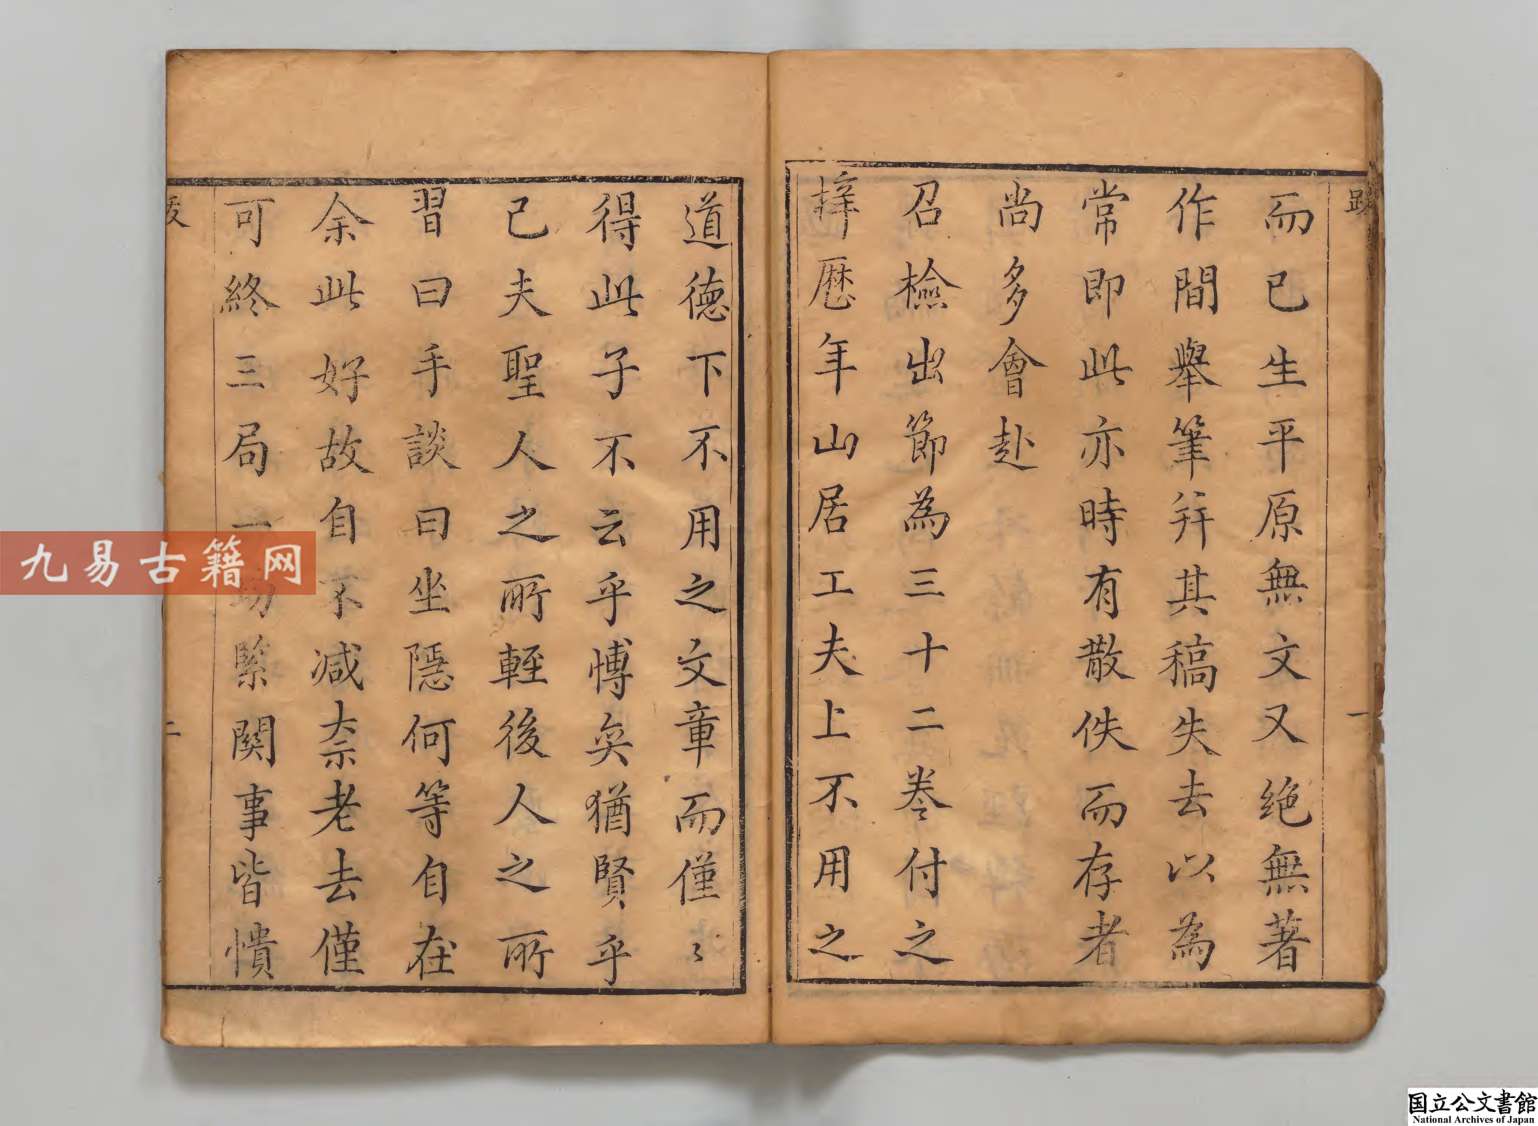 而已生平原無文又絶無著
作間舉筆并其稿失去以為
常即此亦時有散佚而存者
尚多會赴
召檢出節為三十二卷付之
梓歷年山居工夫上不用之
道德下不用之文章而僅〻
得此子不云乎博奕猶賢乎
已夫聖人之所輕後人之所
習曰手談曰坐隱何等自在
余此好故自不减柰老去僅
可終三局一切緊關事皆憒
一
二
九易古籍网
国立公文書館
National Archives of Japan